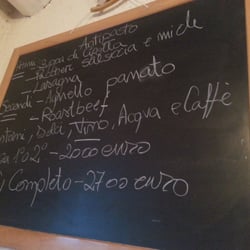 Antipasto
Primi - Zuppa di Cipolla
- salsiccia e miele
- Lasagna
Secondi - Agnello panato
- Roastbeef
Dolci, Vino, Acqua e Caffè
2° - 20.00 euro
Completo - 27.00 euro